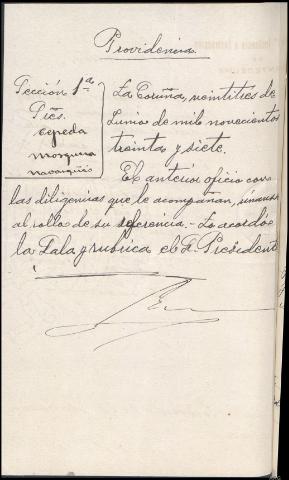 Providencia
Sección 1ª
Pres.
Cepeda
Mosquera
La Coruña, veintitres de
Junio de mil novecientos
treinta y siete.
El anterior oficio con
las diligencias que le acompañan, únanse
al rollo de su referencia.- Lo acordó
la Sala y rubrica el S. President